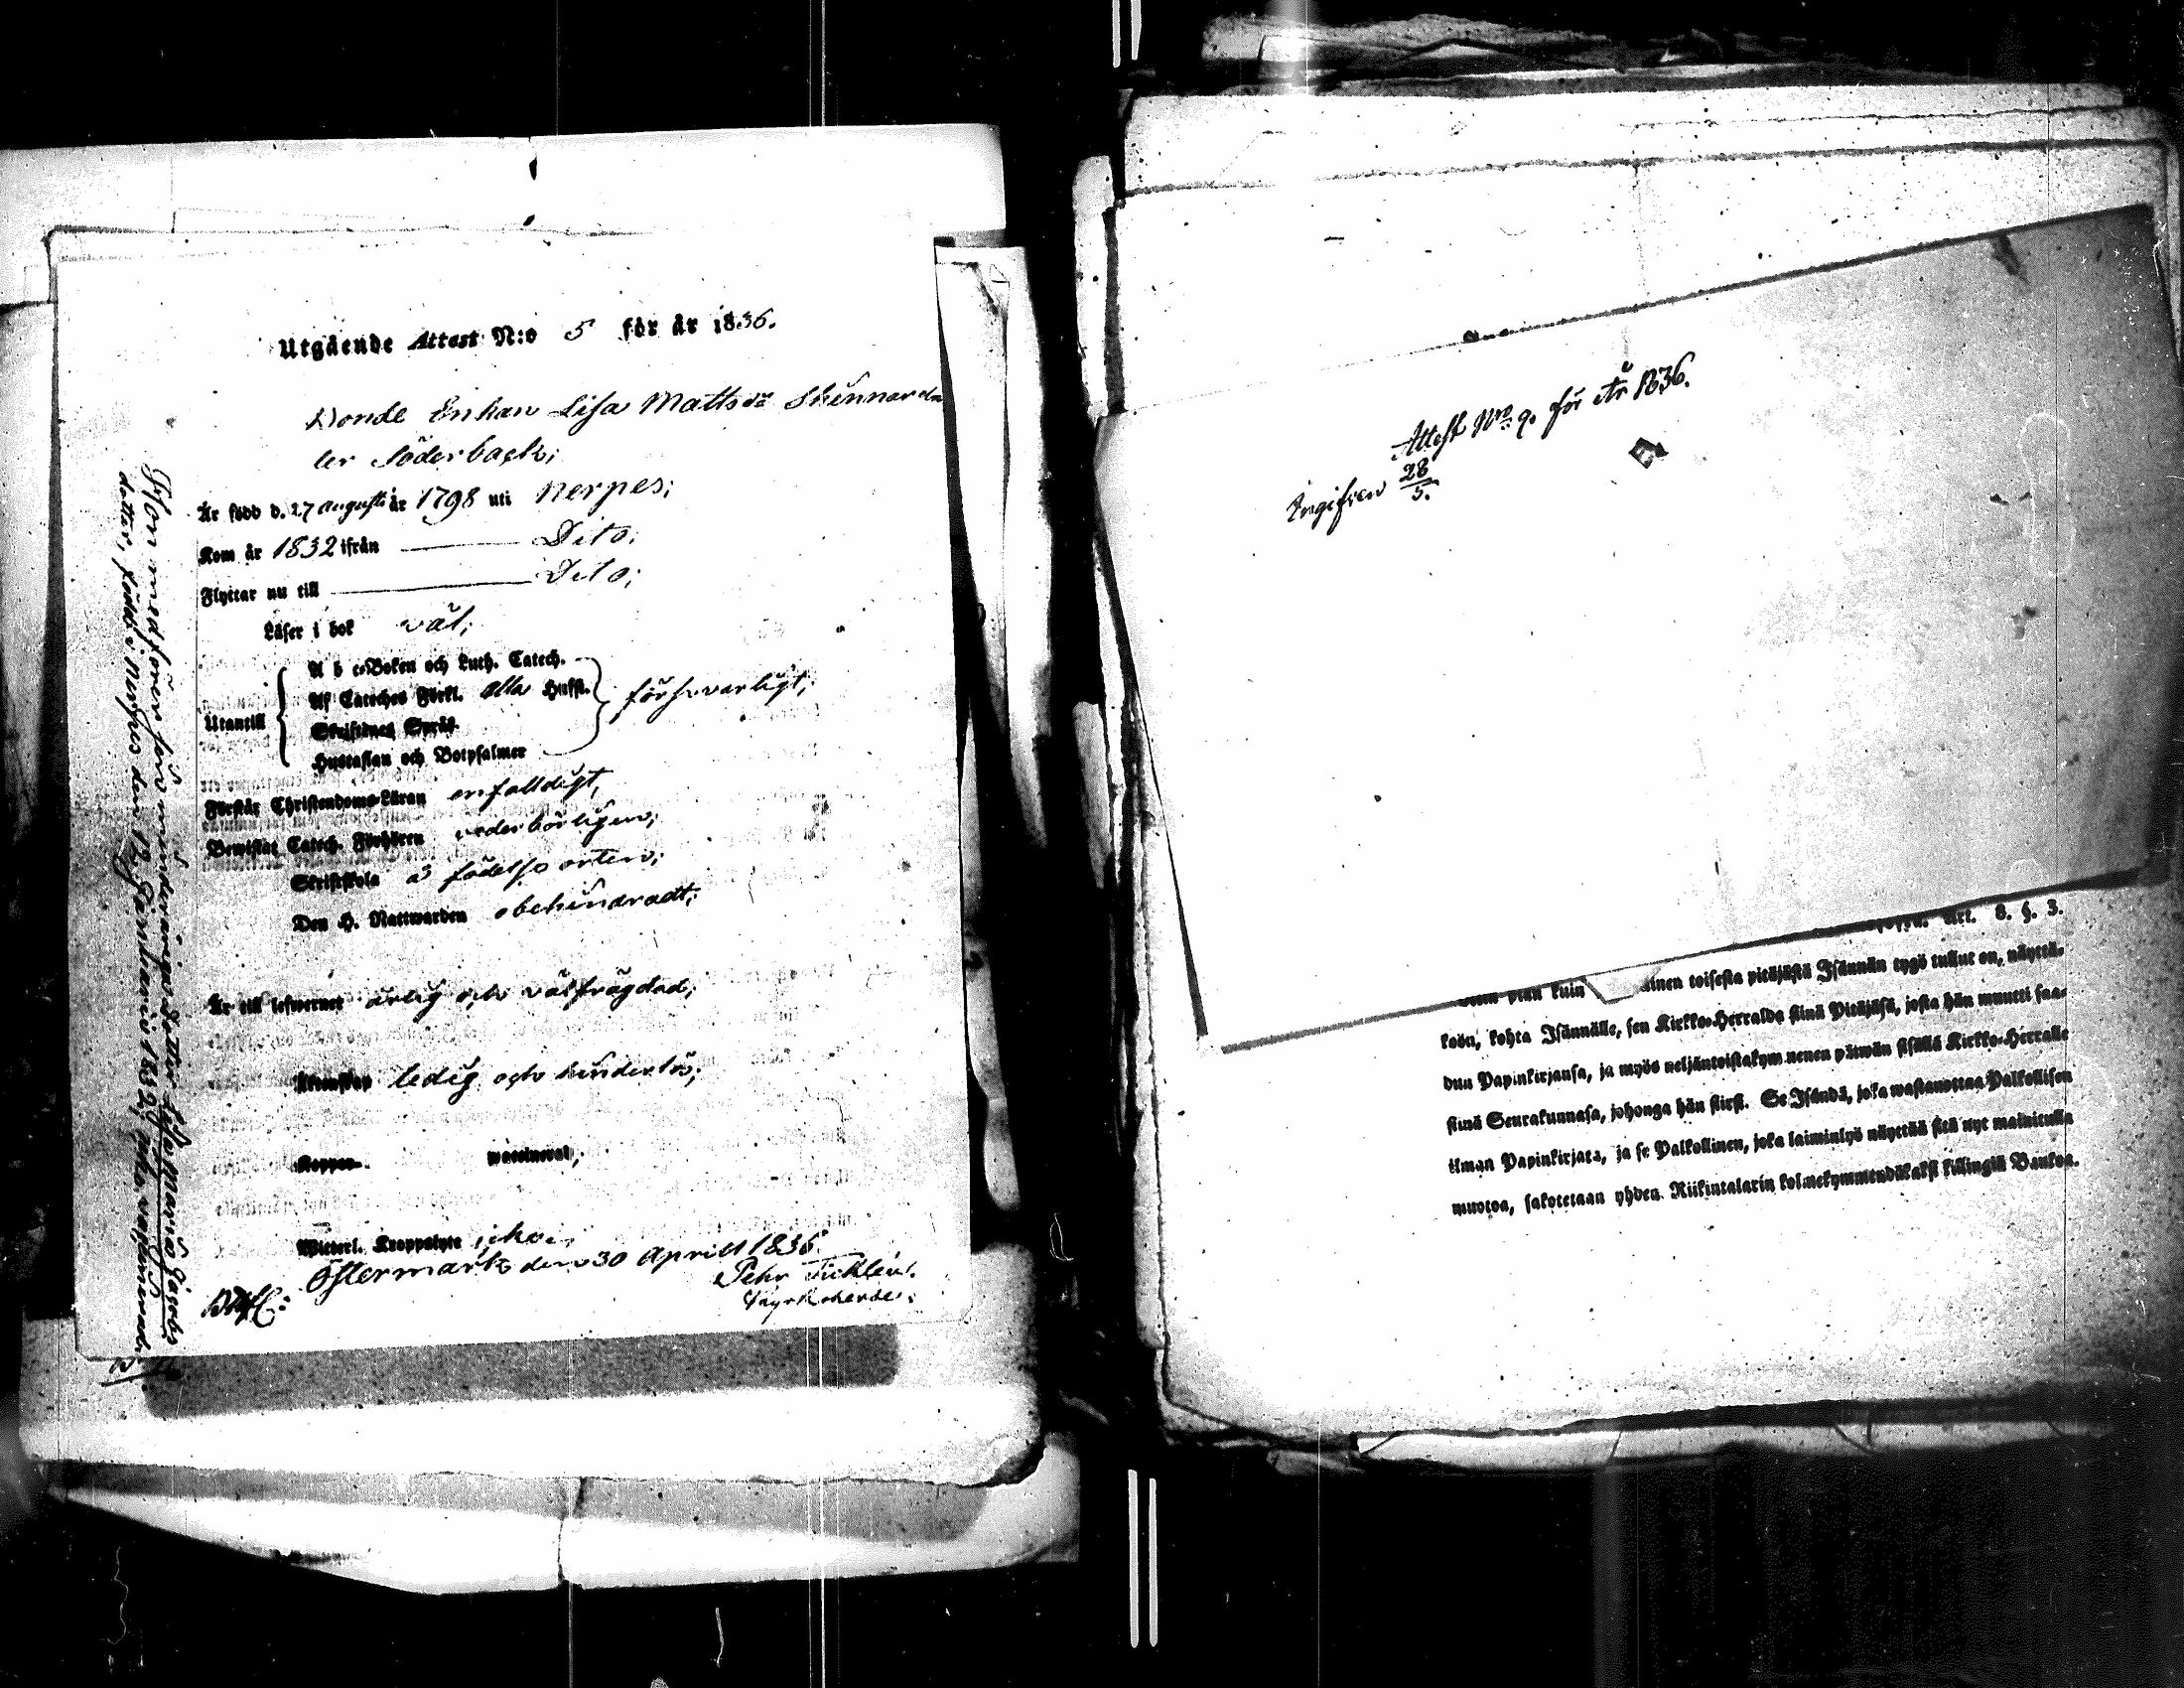 Utgående Attest N:o 5 för år 1836.
Bonde Enkan Lisa Mattsdr
ler Söderback;
Är född d. 27 augusti år 1798 uti Nerpes;
Kom år 1832 ifrån Dito;
Flyttar nu till Dito;
Läser i bok väl;
Utantill
A b c-Boken och Luth. Catech.
Af Cateches Förkl. alla Hufst.
Skriftenes Språk
Hustaflan och Botpsalmer
försvarligt;
Förstår Christendoms-Läran enfalldigt,
Bewistat Catech. Förhören vederbörligen;
Skriftskola å födelse orten;
Den H. Nattwarden obehindradt;
Är till lefwernet ärlig och välfrägdad;
Äktenskap ledig och hinderlös;
Koppor- waccinerad,
Witterl. Kroppslyte icke;
Östermark den 30 Aprill 1836.
Pehr
Kyrkoherde.
Hon medförer sin minderåriga dotter Lisa Maria Jacobs
dotter, född i Nerpes den 12 Januarii 1832, och vaccinerad.
Attest Nro 9. för År 1836.
Ingifven 28/5.
Art. 8. §. 3.
kuin toisesta pitäjästä Isännän tygö tullut on, näyttä-
köön, kohta Isännälle, sen Kirkko-Herralda siinä Pitäjäsä, josta hän muutti saa-
dun Papinkirjansa, ja myös neljäntoistakymmenen päiwän sisällä Kirkko-Herralle
siinä Seurakunnasa, johonga hän siirsi. Se Isändä, joka wastanottaa Palkollisen
ilman Papinkirjata, ja se Palkollinen, joka laiminlyö näyttää sitä nyt mainitulla
muotoa, sakotetaan yhden Riikintalarin kolmekymmendäkaksi killingiä Bankoa.